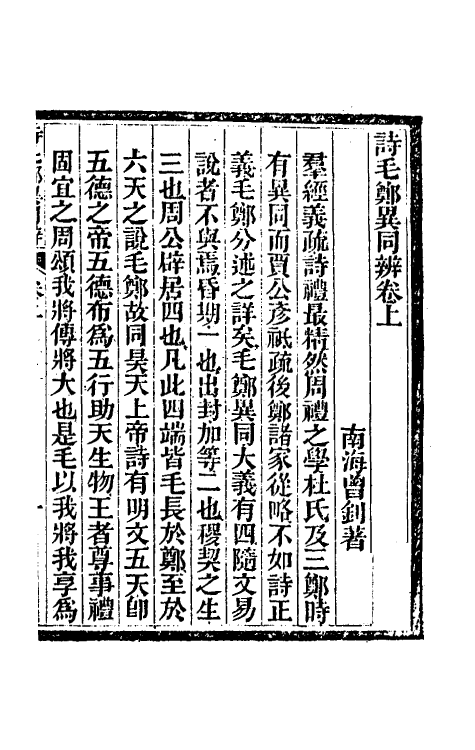 詩毛鄭異同辨卷上
南海曾釗著
羣經義疏詩禮最精然周禮之學杜氏及三鄭時
有異同而賈公彥祗疏後鄭諸家從略不如詩正
義毛鄭分述之詳矣毛鄭異同大義有四隨文易
說者不與焉昏期一也出封加等二也稷契之生
三也周公辟居四也凡此四端皆毛長於鄭至於
六天之說毛鄭故同昊天上帝詩有明文五天卽
五德之帝五德布為五行助天生物王者尊事禮
固宜之周頌我將傳將大也是毛以我將我享為